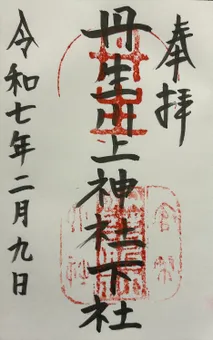 奉拝
丹生川上神社下社
令和七年二月九日